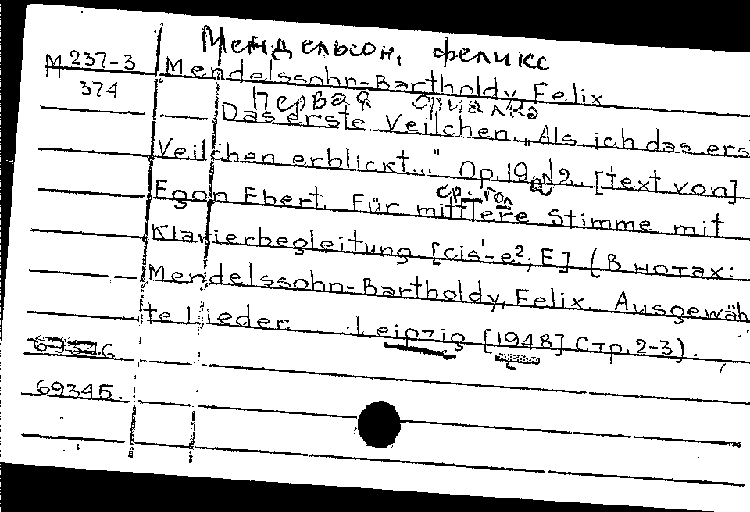 Мендельсон, Феликс
М 237-3 Mendelssohn-Bartholdy, Felix
374
Первая фиалка
Das erste Veilchen. "Als ich das ers
Veilchen erblickt..." Op. 19a №2. [Text von]
ср. гол
Egon Ebert. Für mittlere Stimme mit
Klavierbegleitung [cis'-e², E] (В нотах:
Mendelssohn-Bartholdy, Felix. Ausgewäh
te Lieder. Leipzig [1948] Стр. 2-3).
69345.